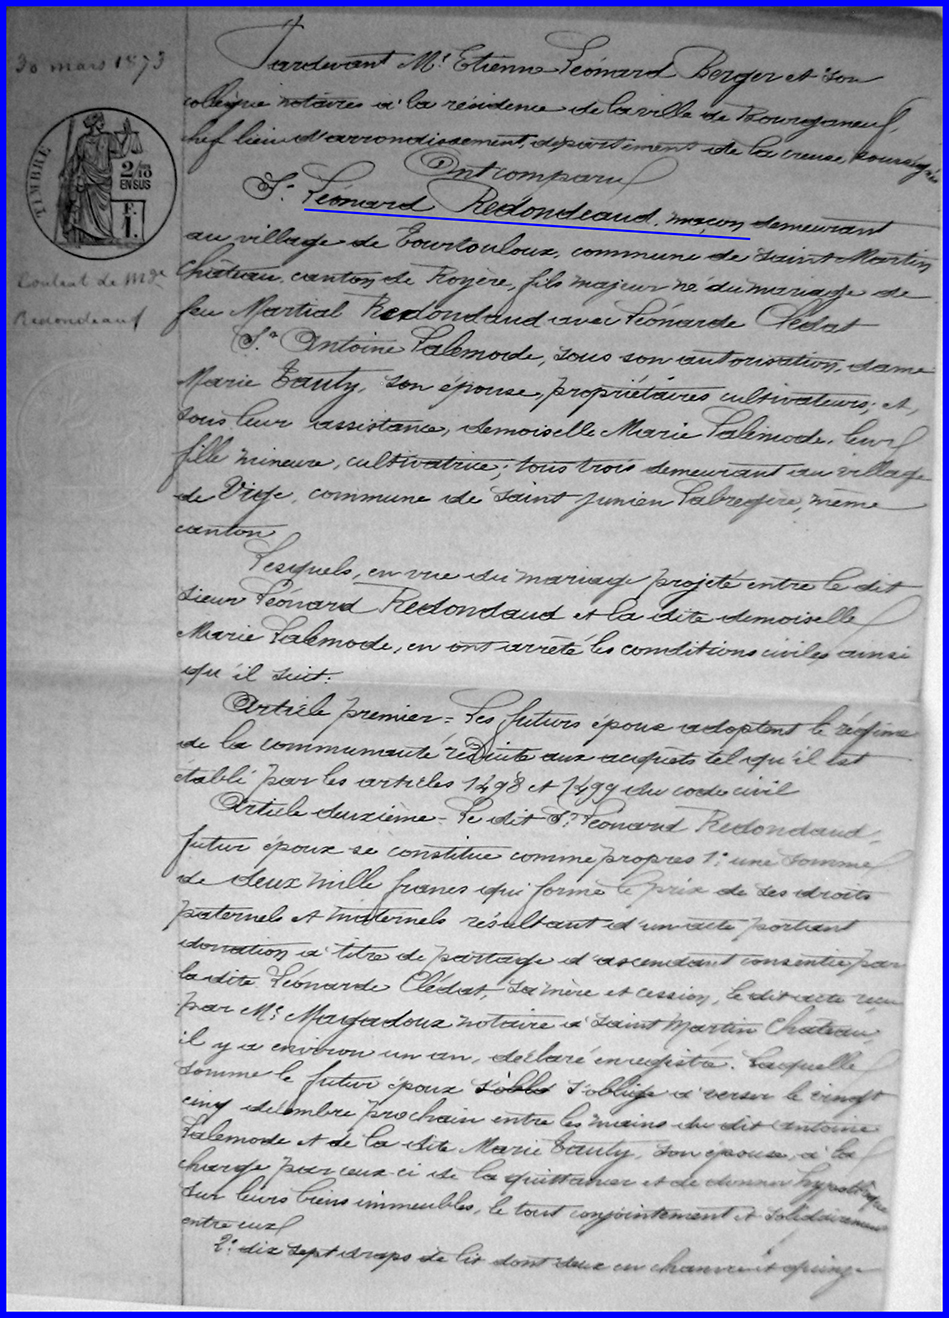 30 mars 1873
TIMBRE
2/10
EN SUS
1 F.
Contrat de Mge
Redondeaud
Pardevant Me Etienne Léonard Berger et son
collègue notaires à la résidence de la ville de Bourganeuf,
chef lieu d'arrondissement, département de la creuse, soussignés
Ont comparu
Sr Léonard Redondeaud, maçon demeurant
au village de Tourtouloux, commune de Saint Martin
Château, canton de Royère, fils majeur né du mariage de
feu Martial Redondaud avec Léonarde Clédat
Sr Antoine Lalemode, sous son autorisation, dame
Marie Tauty, son épouse, propriétaires cultivateurs; et,
sous leur assistance, demoiselle Marie Lalemode, leur
fille mineure, cultivatrice; tous trois demeurant au village
de Vige, commune de Saint Junien Labregère, même
canton
Lesquels, en vue du mariage projeté entre le dit
sieur Léonard Redondaud et la dite demoiselle
Marie Lalemode, en ont arrêté les conditions civiles ainsi
qu'il suit:
Article premier = Les futurs époux adoptent le régime
de la communauté réduite aux acquets tel qu'il est
établi par les articles 1498 et 1499 du code civil
Article deuxième = Le dit Sr Léonard Redondaud,
futur époux se constitue comme propres 1° une somme
de deux mille francs qui forme le prix de ses droits
paternels et maternels résultant d'un acte portant
donation à titre de partage d'ascendant consentie par
la dite Léonarde Clédat, sa mère et cession, le dit acte reçu
par Me Magadoux notaire à Saint Martin Château,
il y a environ un an, déclaré enregistré. Laquelle
somme le futur époux s'oblige à verser le vingt
cinq décembre prochain entre les mains du dit Antoine
Lalemode et de la dite Marie Tauty, son épouse, à la
charge par ceux-ci de la quittancer et de donner hypothèque
sur leurs biens immeubles, le tout conjointement et solidairement
entre eux
2° dix sept draps de lit dont deux en chanvre et quinze